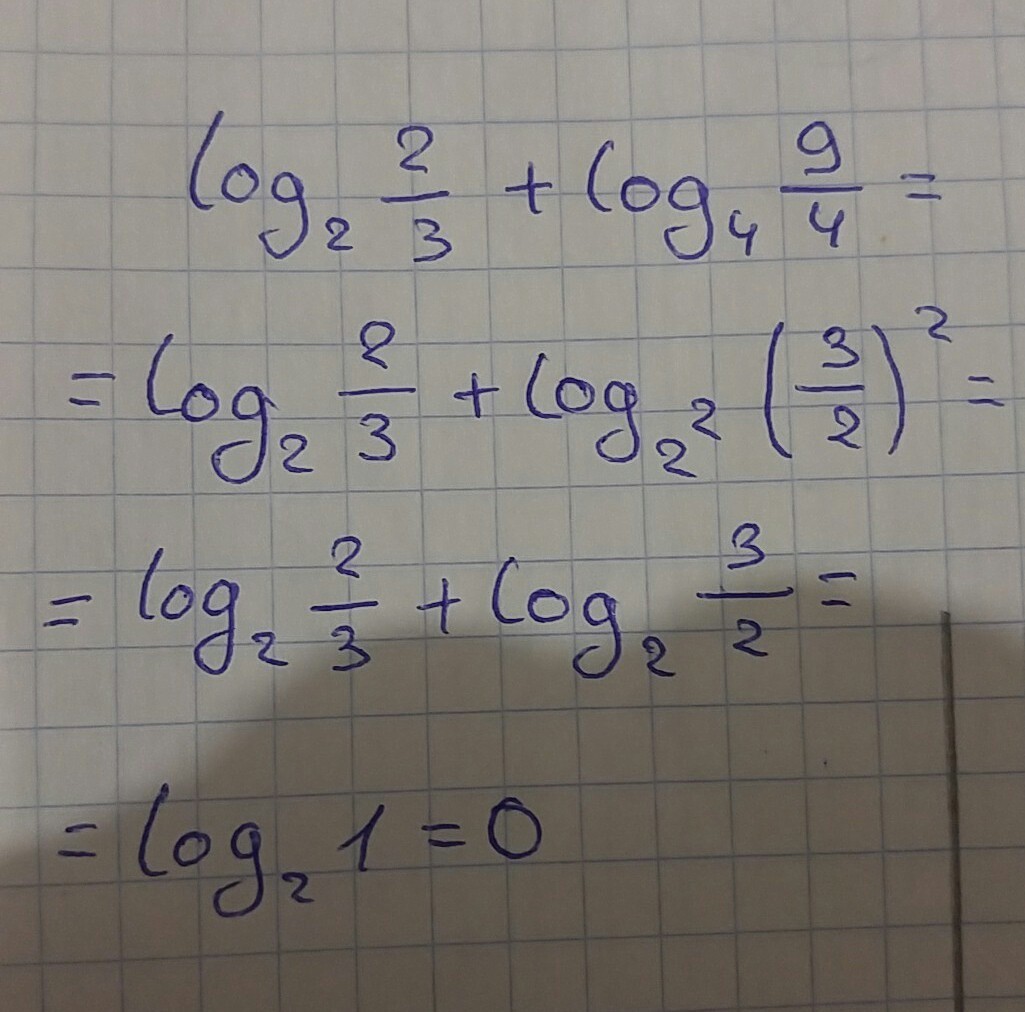 log₂ 2/3 + log₄ 9/4 =
= log₂ 2/3 + log₂² (3/2)² =
= log₂ 2/3 + log₂ 3/2 =
= log₂ 1 = 0